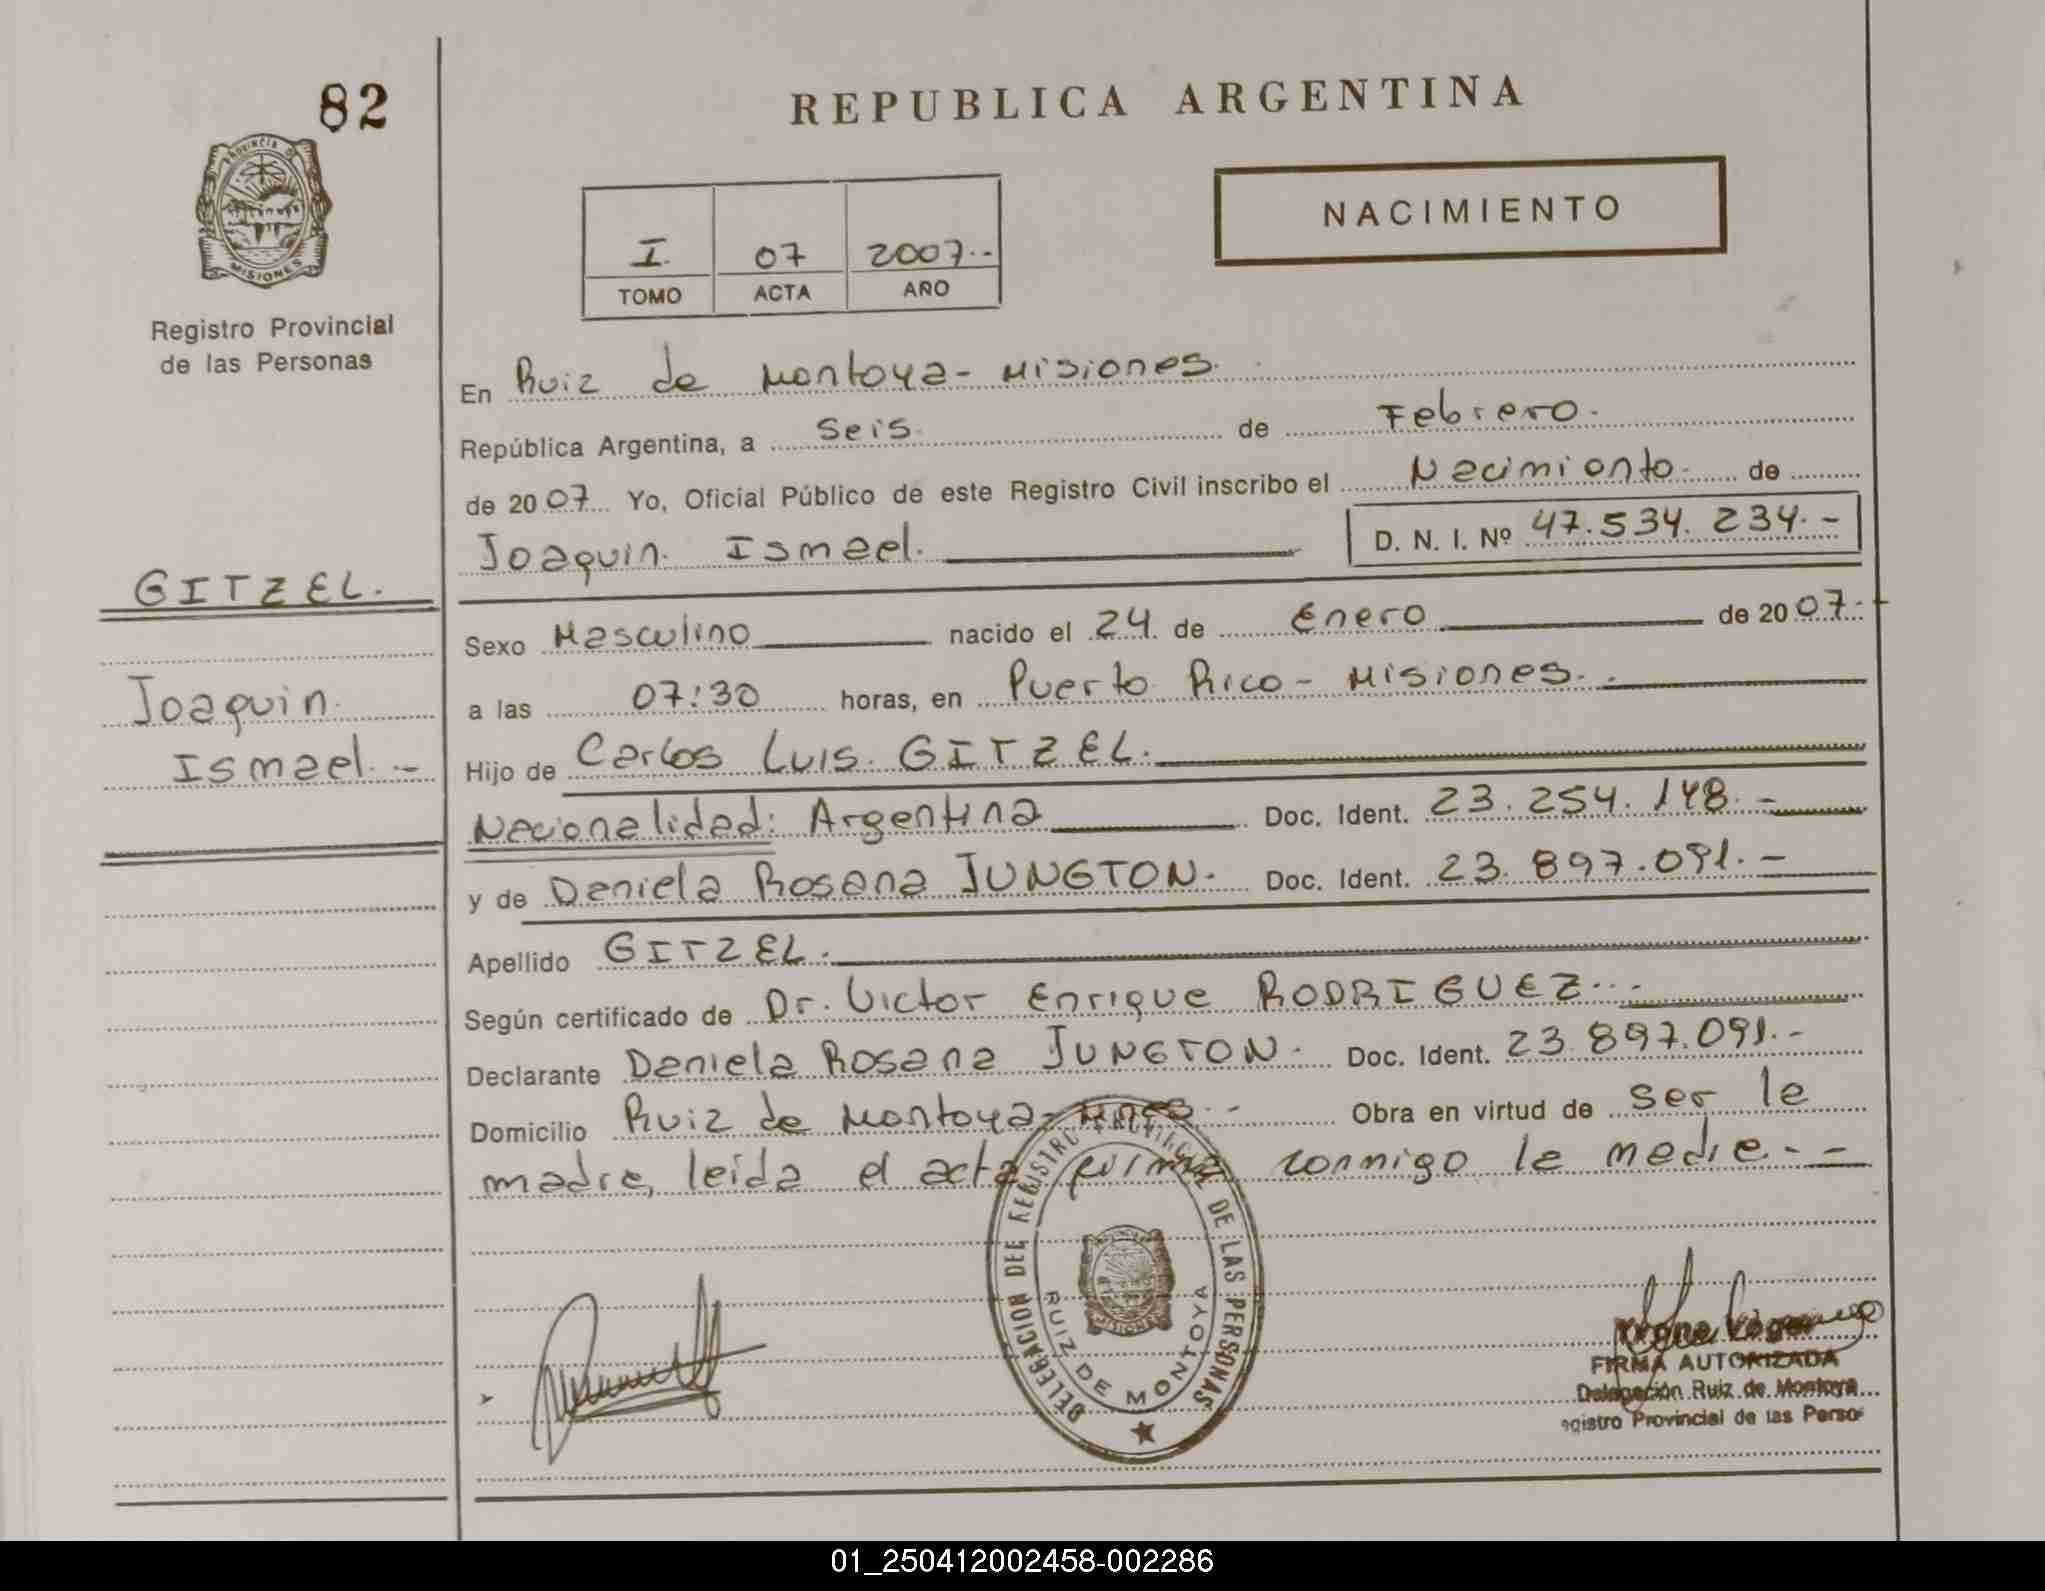 82
REPUBLICA ARGENTINA
PROVINCIA DE
MISIONES
NACIMIENTO
I. 07 2007.-
TOMO ACTA AÑO
Registro Provincial
de las Personas
En Ruiz de Montoya - Misiones.
República Argentina, a Seis. de Febrero.
de 2007 Yo, Oficial Público de este Registro Civil inscribo el Nacimiento. de
Joaquin. Ismael. D. N. I. Nº 47.534.234.-
GITZEL.
Sexo Masculino nacido el 24 de Enero de 2007.-
Joaquin.
a las 07:30 horas, en Puerto Rico - Misiones.-
Ismael.-
Hijo de Carlos Luis. GITZEL.
Nacionalidad: Argentina Doc. Ident. 23.254.148.-
y de Daniela Rosana JUNGTON. Doc. Ident. 23.897.091.-
Apellido GITZEL.
Según certificado de Dr. Victor Enrique RODRIGUEZ.-
Declarante Daniela Rosana JUNGTON. Doc. Ident. 23.897.091.-
Domicilio Ruiz de Montoya - Mnes.- Obra en virtud de ser la
madre, leída el acta firma conmigo la madre.-
DELEGACION DEL REGISTRO PROVINCIAL DE LAS PERSONAS
RUIZ DE MONTOYA
MISIONES
FIRMA AUTORIZADA
Delegación Ruiz de Montoya
egistro Provincial de las Perso
01_250412002458-002286